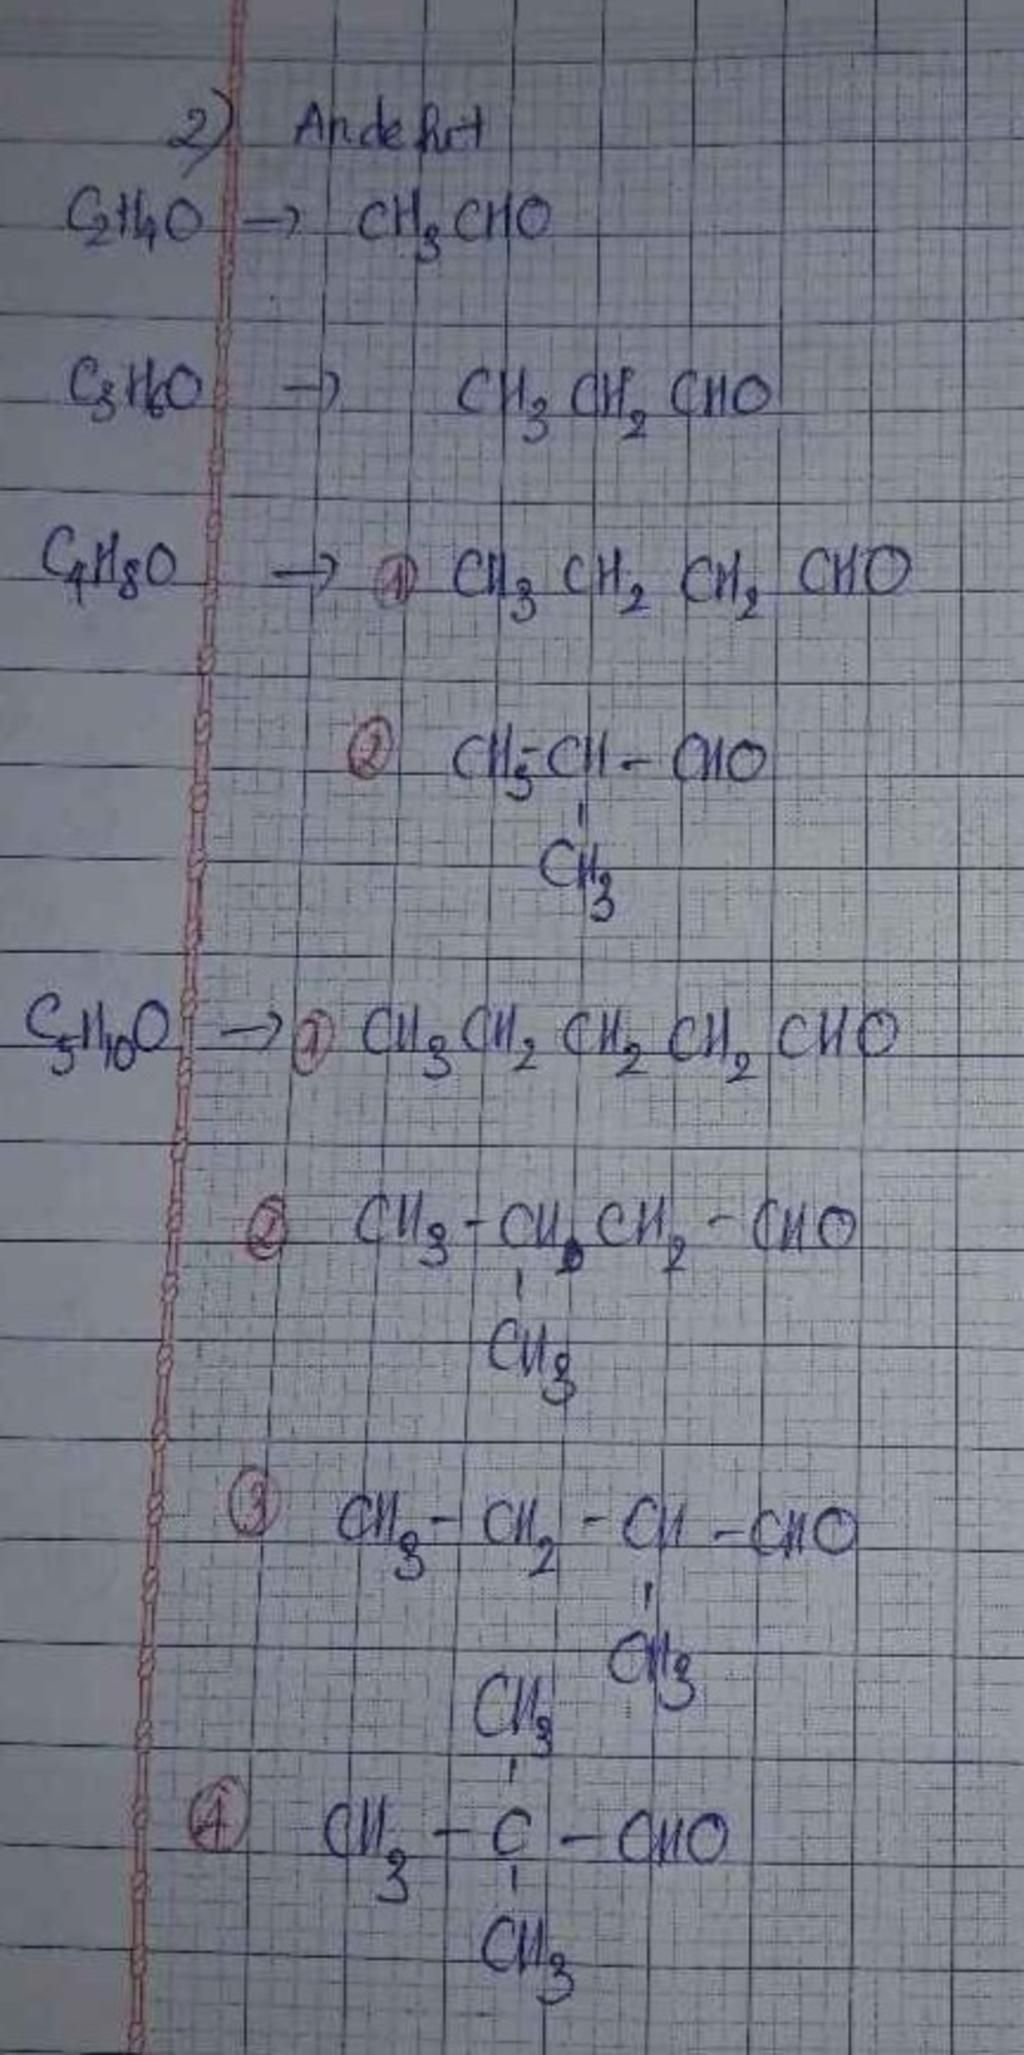 2) Andehit
C2H4O → CH3CHO
C3H6O → CH3 CH2 CHO
C4H8O → ① CH3 CH2 CH2 CHO
② CH3-CH-CHO
CH3
C5H10O → ① CH3 CH2 CH2 CH2 CHO
② CH3-CH CH2-CHO
CH3
③ CH3-CH2-CH-CHO
CH3
CH3
④ CH3-C-CHO
CH3